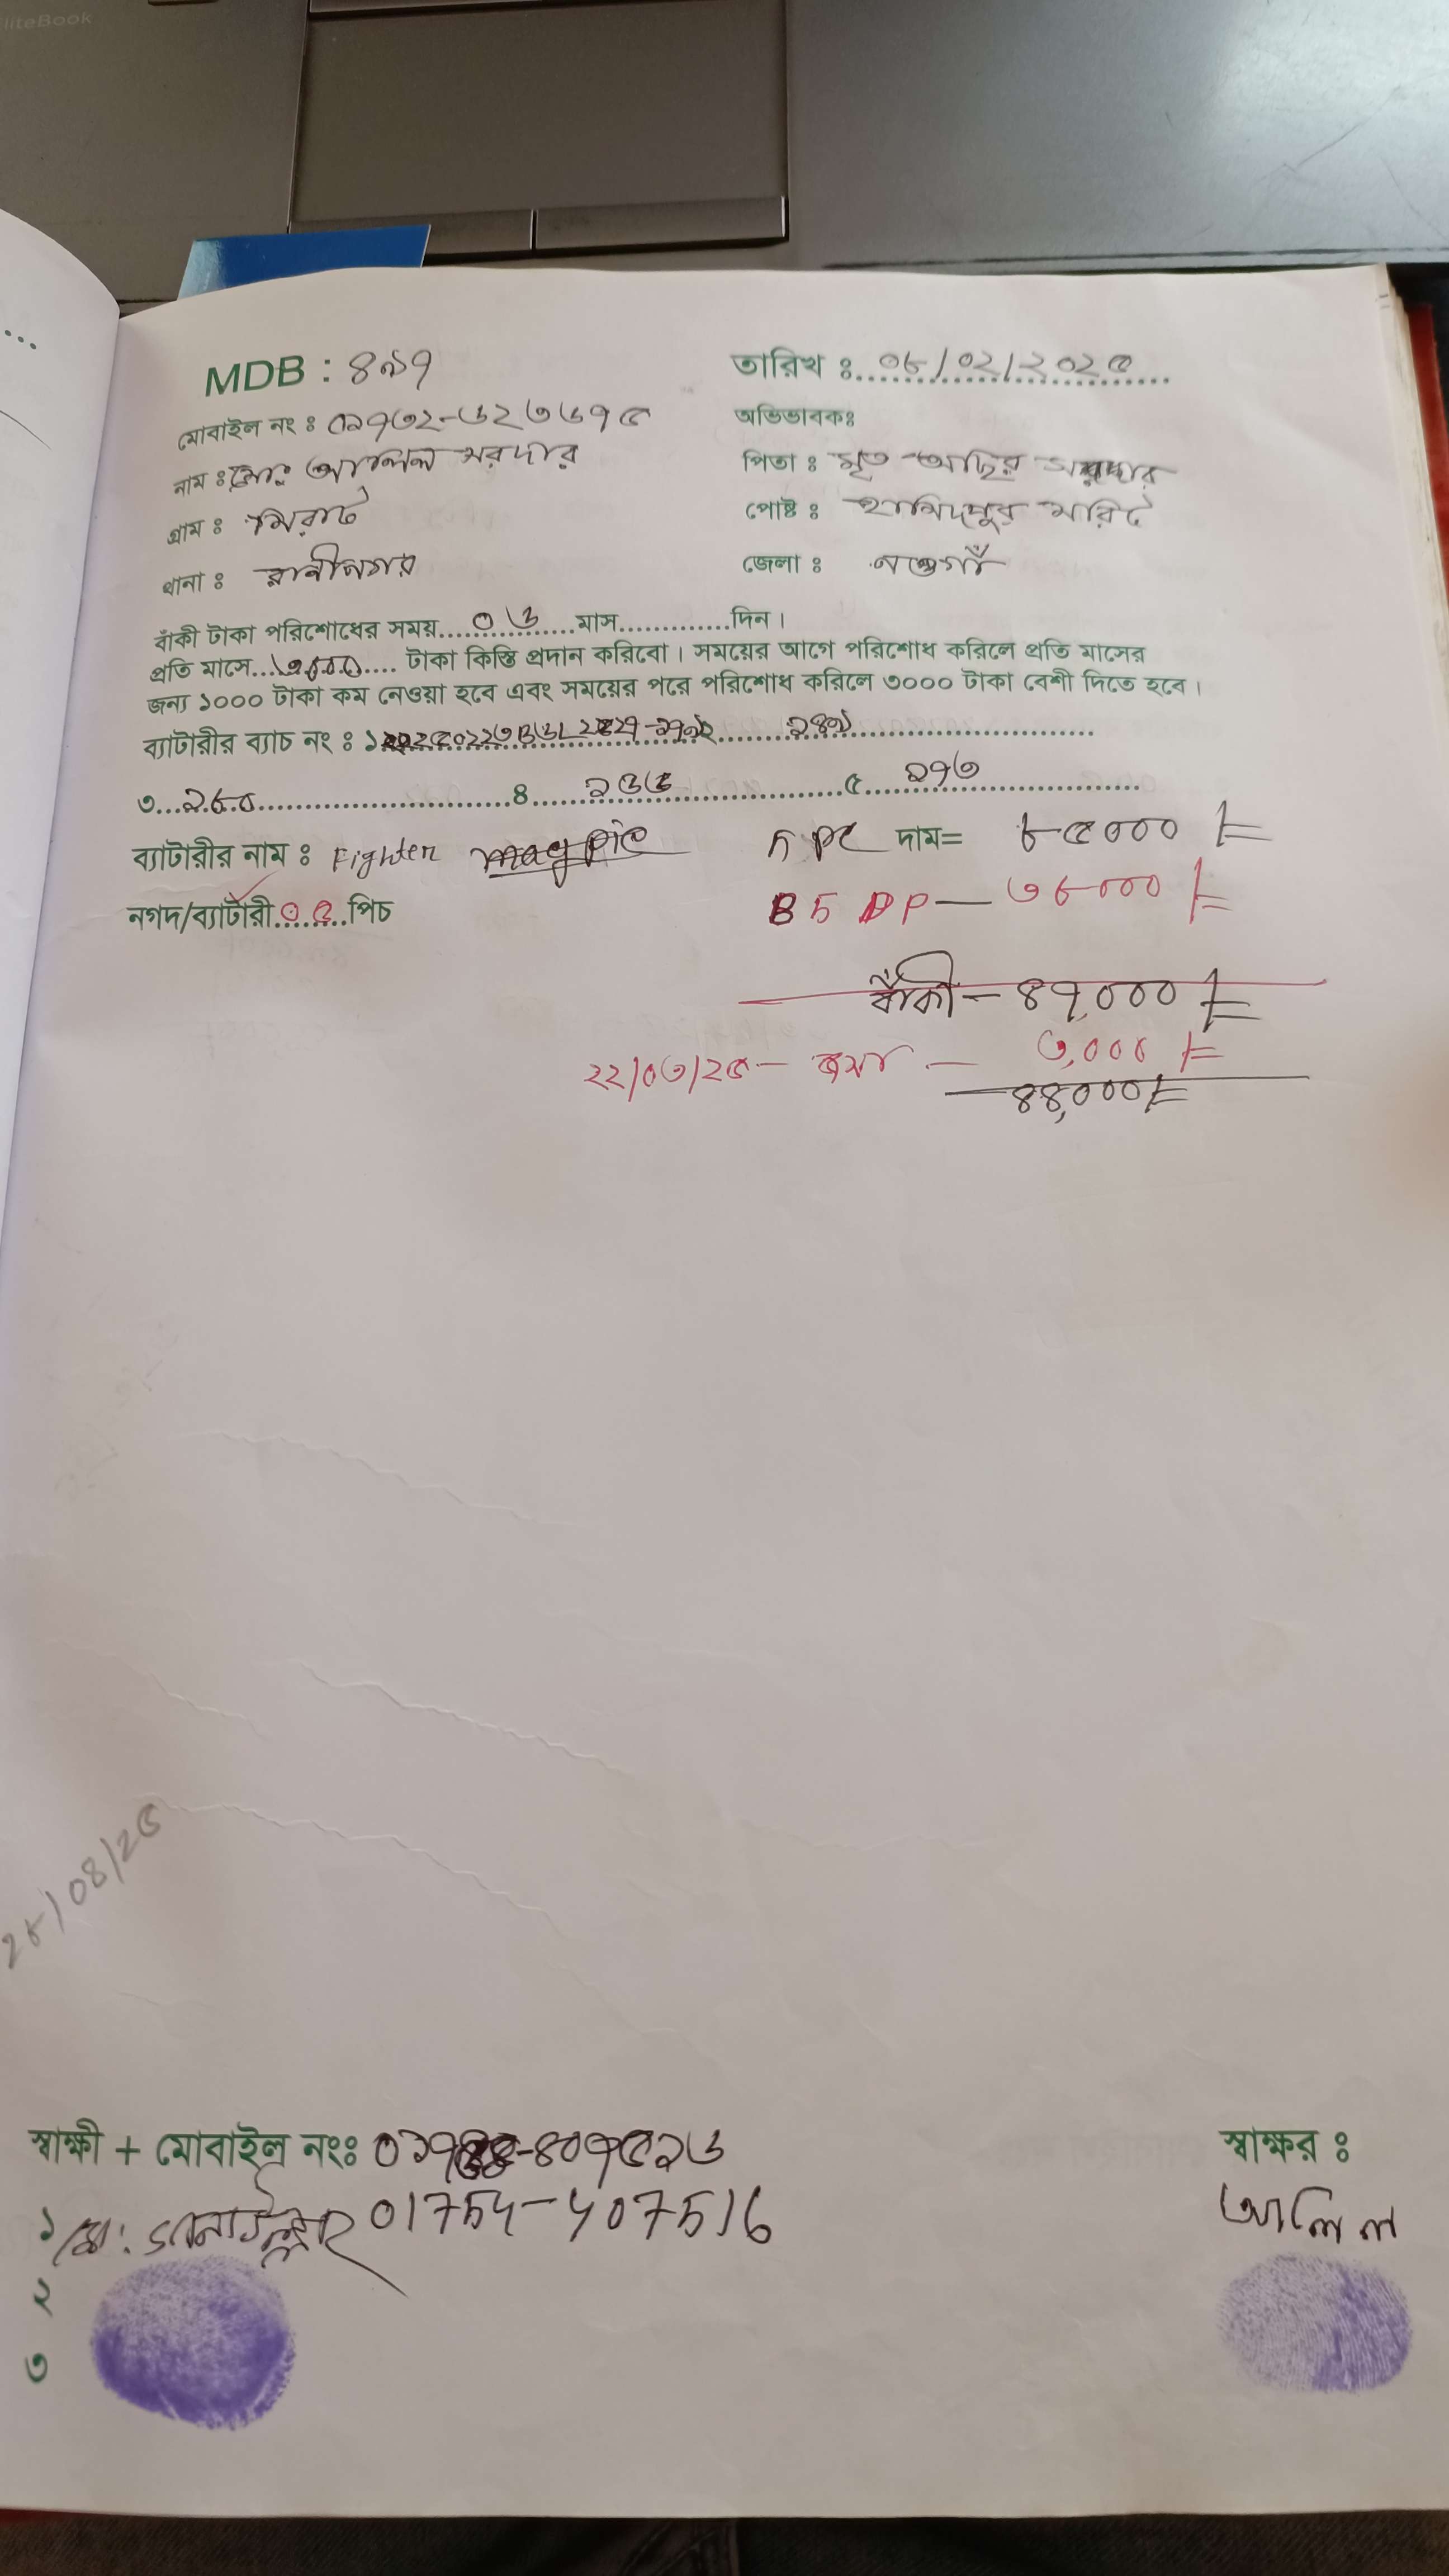 EliteBook
MDB : ৪৯৭ তারিখ ঃ ০৮/০২/২০২৫
মোবাইল নং ঃ ০১৭৩২-৬২৩৬৭৫ অভিভাবকঃ
নাম ঃ মোঃ আলিল সরদার পিতা ঃ মৃত অছির সরদার
গ্রাম ঃ মিরাট পোষ্ট ঃ হামিদপুর
থানা ঃ রানীনগর জেলা ঃ নওগাঁ
বাঁকী টাকা পরিশোধের সময়....০৬....মাস.............দিন।
প্রতি মাসে........ টাকা কিস্তি প্রদান করিবো। সময়ের আগে পরিশোধ করিলে প্রতি মাসের
জন্য ১০০০ টাকা কম নেওয়া হবে এবং সময়ের পরে পরিশোধ করিলে ৩০০০ টাকা বেশী দিতে হবে।
ব্যাটারীর ব্যাচ নং ঃ ১
৩...২৮০....৪.........৫....২৭৩....
ব্যাটারীর নাম ঃ Fighter 5 pc দাম= ৮৫০০০
নগদ/ব্যাটারী..০৫..পিচ B 5 DP — ৩৮০০০
বাঁকী - ৪৭,০০০
২২/০৩/২৫ - জমা - ৩,০০০
৪৪,০০০
২৮/০৪/২৫
স্বাক্ষী + মোবাইল নংঃ স্বাক্ষর ঃ
১ মোঃ 01754-407516 আলিল
২
৩